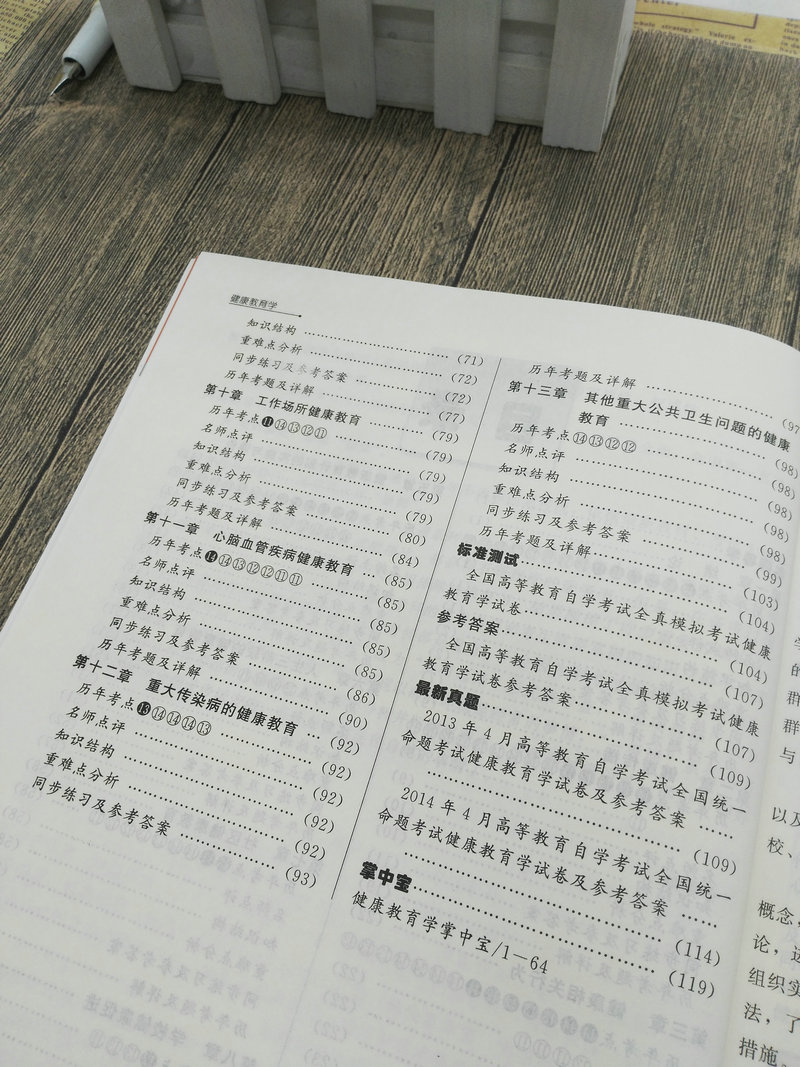 健康教育学
知识结构 …………………… (71)
重难点分析 …………………… (72)
同步练习及参考答案 …………… (72)
历年考题及详解 ……………… (77)
第十章 工作场所健康教育 …… (79)
历年考点⓫⑭⑬⑫⑪ …………… (79)
名师点评 …………………… (79)
知识结构 …………………… (79)
重难点分析 …………………… (79)
同步练习及参考答案 …………… (80)
历年考题及详解 ……………… (84)
第十一章 心脑血管疾病健康教育 … (85)
历年考点⓮⑭⑬⑫⑫⑪⑪ ………… (85)
名师点评 …………………… (85)
知识结构 …………………… (85)
重难点分析 …………………… (85)
同步练习及参考答案 …………… (86)
历年考题及详解 ……………… (90)
第十二章 重大传染病的健康教育 … (92)
历年考点⓭⑭⑭⑭⑬ …………… (92)
名师点评 …………………… (92)
知识结构 …………………… (92)
重难点分析 …………………… (92)
同步练习及参考答案 …………… (93)
历年考题及详解 ……………… (97
第十三章 其他重大公共卫生问题的健康
教育 …………………… (98)
历年考点⑭⑬⑫⑫ …………… (98)
名师点评 …………………… (98)
知识结构 …………………… (98)
重难点分析 …………………… (98)
同步练习及参考答案 …………… (99)
历年考题及详解 ……………… (103)
标准测试 …………………… (104)
全国高等教育自学考试全真模拟考试健康
教育学试卷 …………………… (104)
参考答案 …………………… (107)
全国高等教育自学考试全真模拟考试健康
教育学试卷参考答案 …………… (107)
最新真题 …………………… (109)
2013年4月高等教育自学考试全国统一
命题考试健康教育学试卷及参考答案 ……
…………………… (109)
2014年4月高等教育自学考试全国统一
命题考试健康教育学试卷及参考答案 ……
…………………… (114)
掌中宝 …………………… (119)
健康教育学掌中宝/1-64
的
群
群
与
以及
校、
概念,
论,
组织实
法,了
措施,